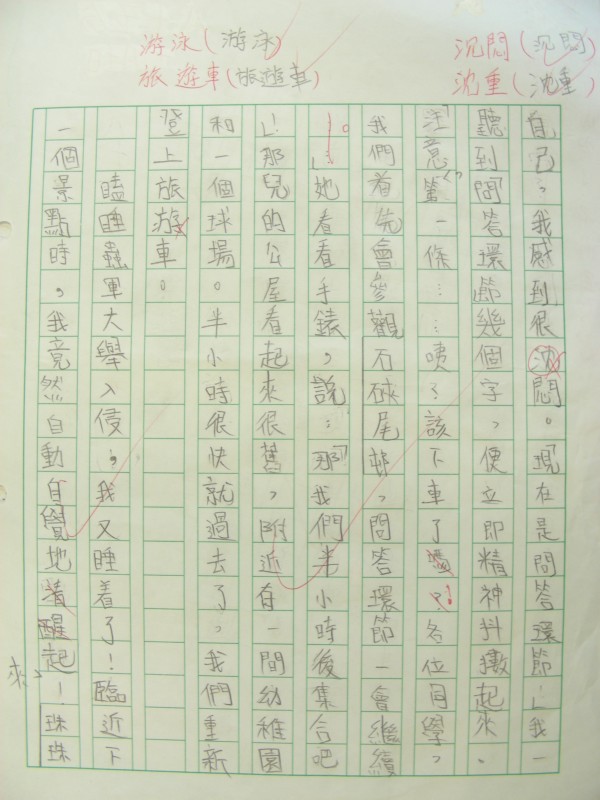 沉悶(沉悶)
沈重(沈重)
游泳(游泳)
旅遊車(旅遊車)
自己,我感到很沈悶。「現在是問答環節!」我一
聽到「問答環節幾個字,便立即精神抖擻起來。
「注意,第一條……咦?該下車了!各位同學,
我們首先會參觀石硤尾邨,問答環節一會繼續
。」她看看手錶,說:「那我們半小時後集合吧
!」那兒的公屋看起來很舊,附近有一間幼稚園
和一個球場。半小時很快就過去了,我們重新
登上旅游車。
瞌睡蟲軍大舉入侵,我又睡着了!臨近下
一個景點時,我竟然自動自覺地醒起來!珠珠